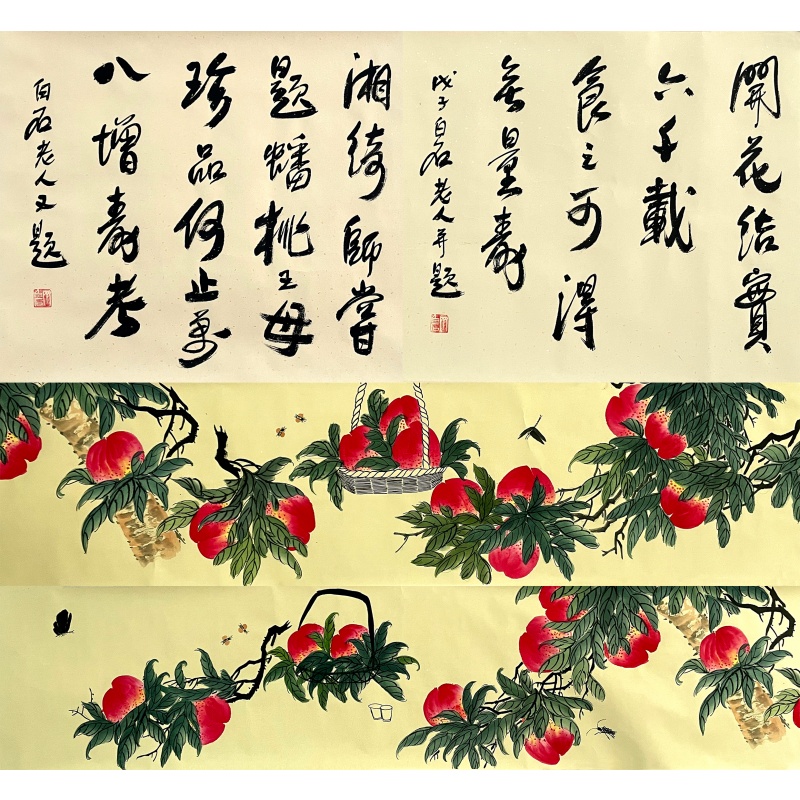 開花結實
六千載
食之可得
無量壽
戊子白石老人并題
湘綺師嘗
題蟠桃王母
珍品何止萬
八增壽考
白石老人又題